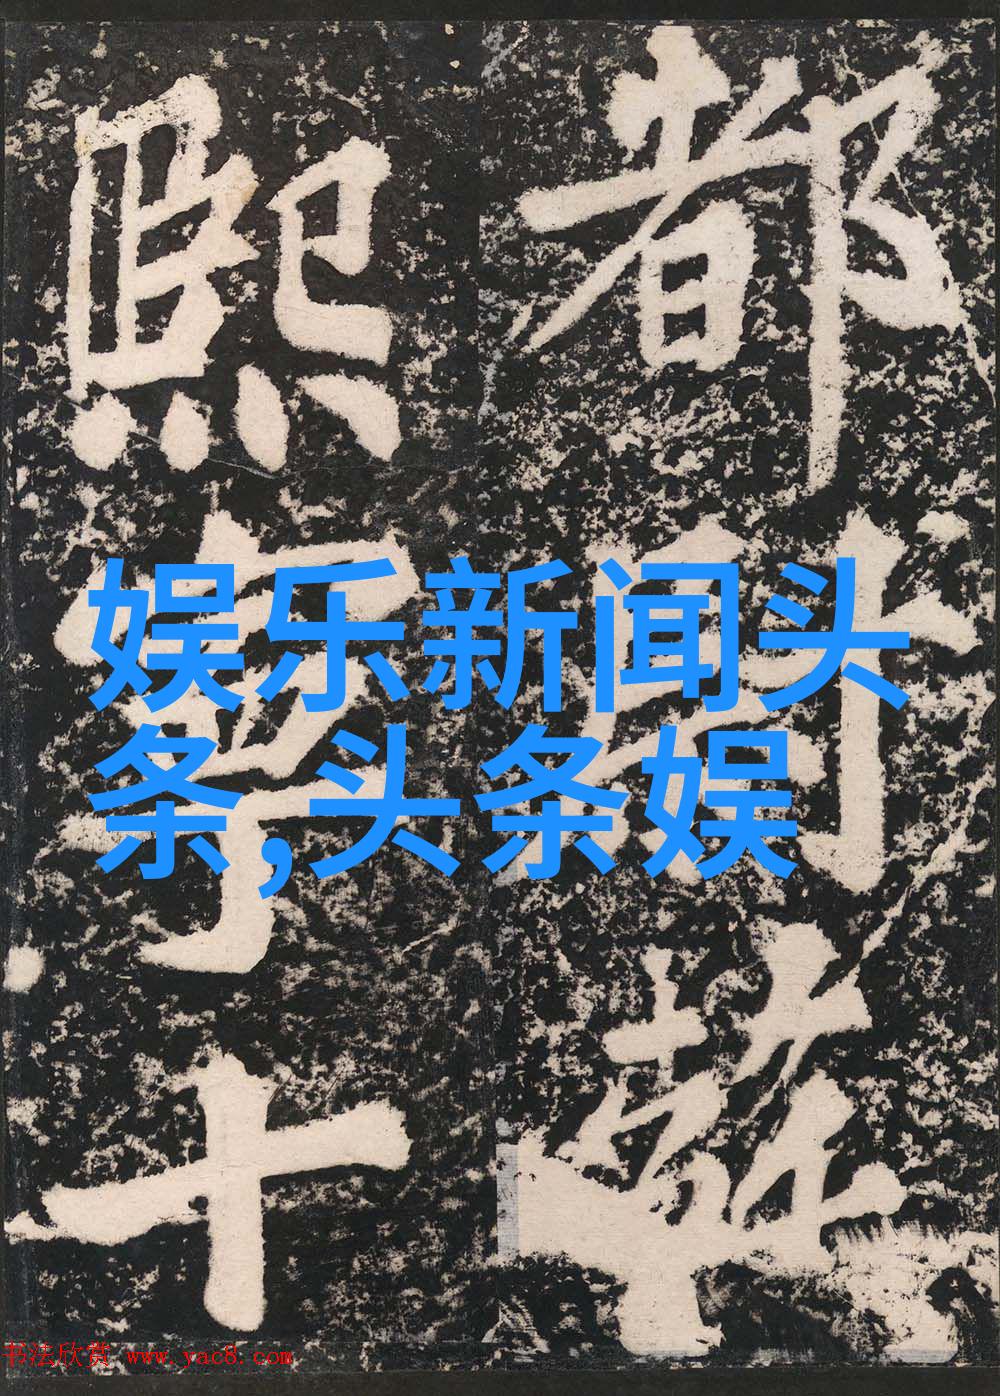 都尉蘇
熙寧十
娱乐新闻头
条,头条娱
书法欣赏 www.yac8.com